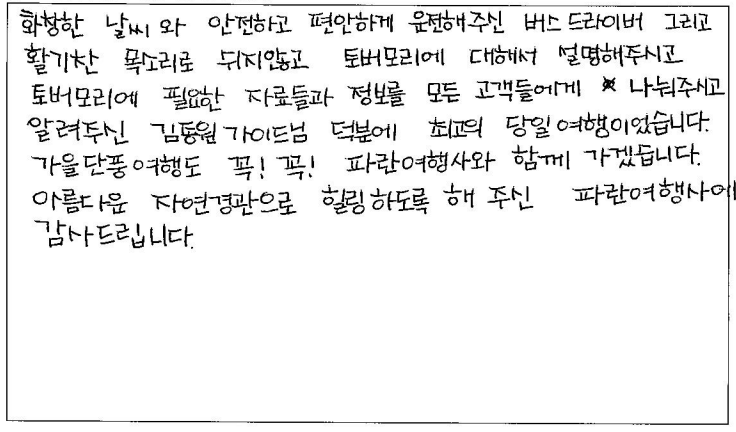 화창한 날씨와 안전하고 편안하게 운전해주신 버스 드라이버 그리고
활기찬 목소리로 쉬지않고 토버모리에 대해서 설명해주시고
토버모리에 필요한 자료들과 정보를 모든 고객들에게 나눠주시고
알려주신 김동원 가이드님 덕분에 최고의 당일여행이었습니다.
가을단풍여행도 꼭! 꼭! 파란여행사와 함께 가겠습니다.
아름다운 자연경관으로 힐링하도록 해 주신 파란여행사에
감사드립니다.